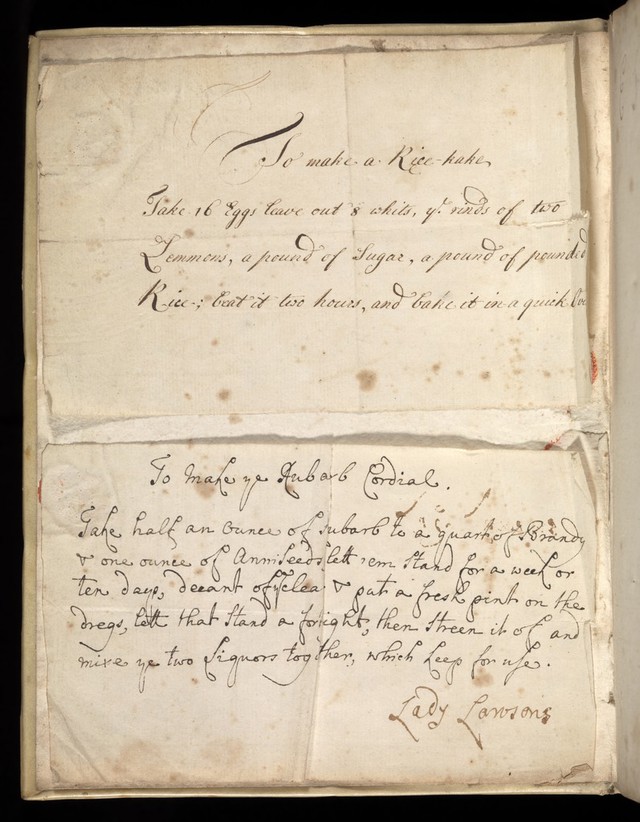 To make a Rice-kake
Take 16 Eggs leave out 8 whits, ye. rinds of two
Lemmons, a pound of Sugar, a pound of pounded
Rice; beat it two hours, and bake it in a quick Ove
To Make ye Rubarb Cordial.
Take half an Ounce of rubarb to a quart of Brandy
& one ounce of Anniseeds lett em Stand for a week or
ten days, decant of ye clea & put a fresh pint on the
dregs, lett that Stand a fornight, then Streen it of and
mixe ye two Liquors together, which keep for use.
Lady Lawsons